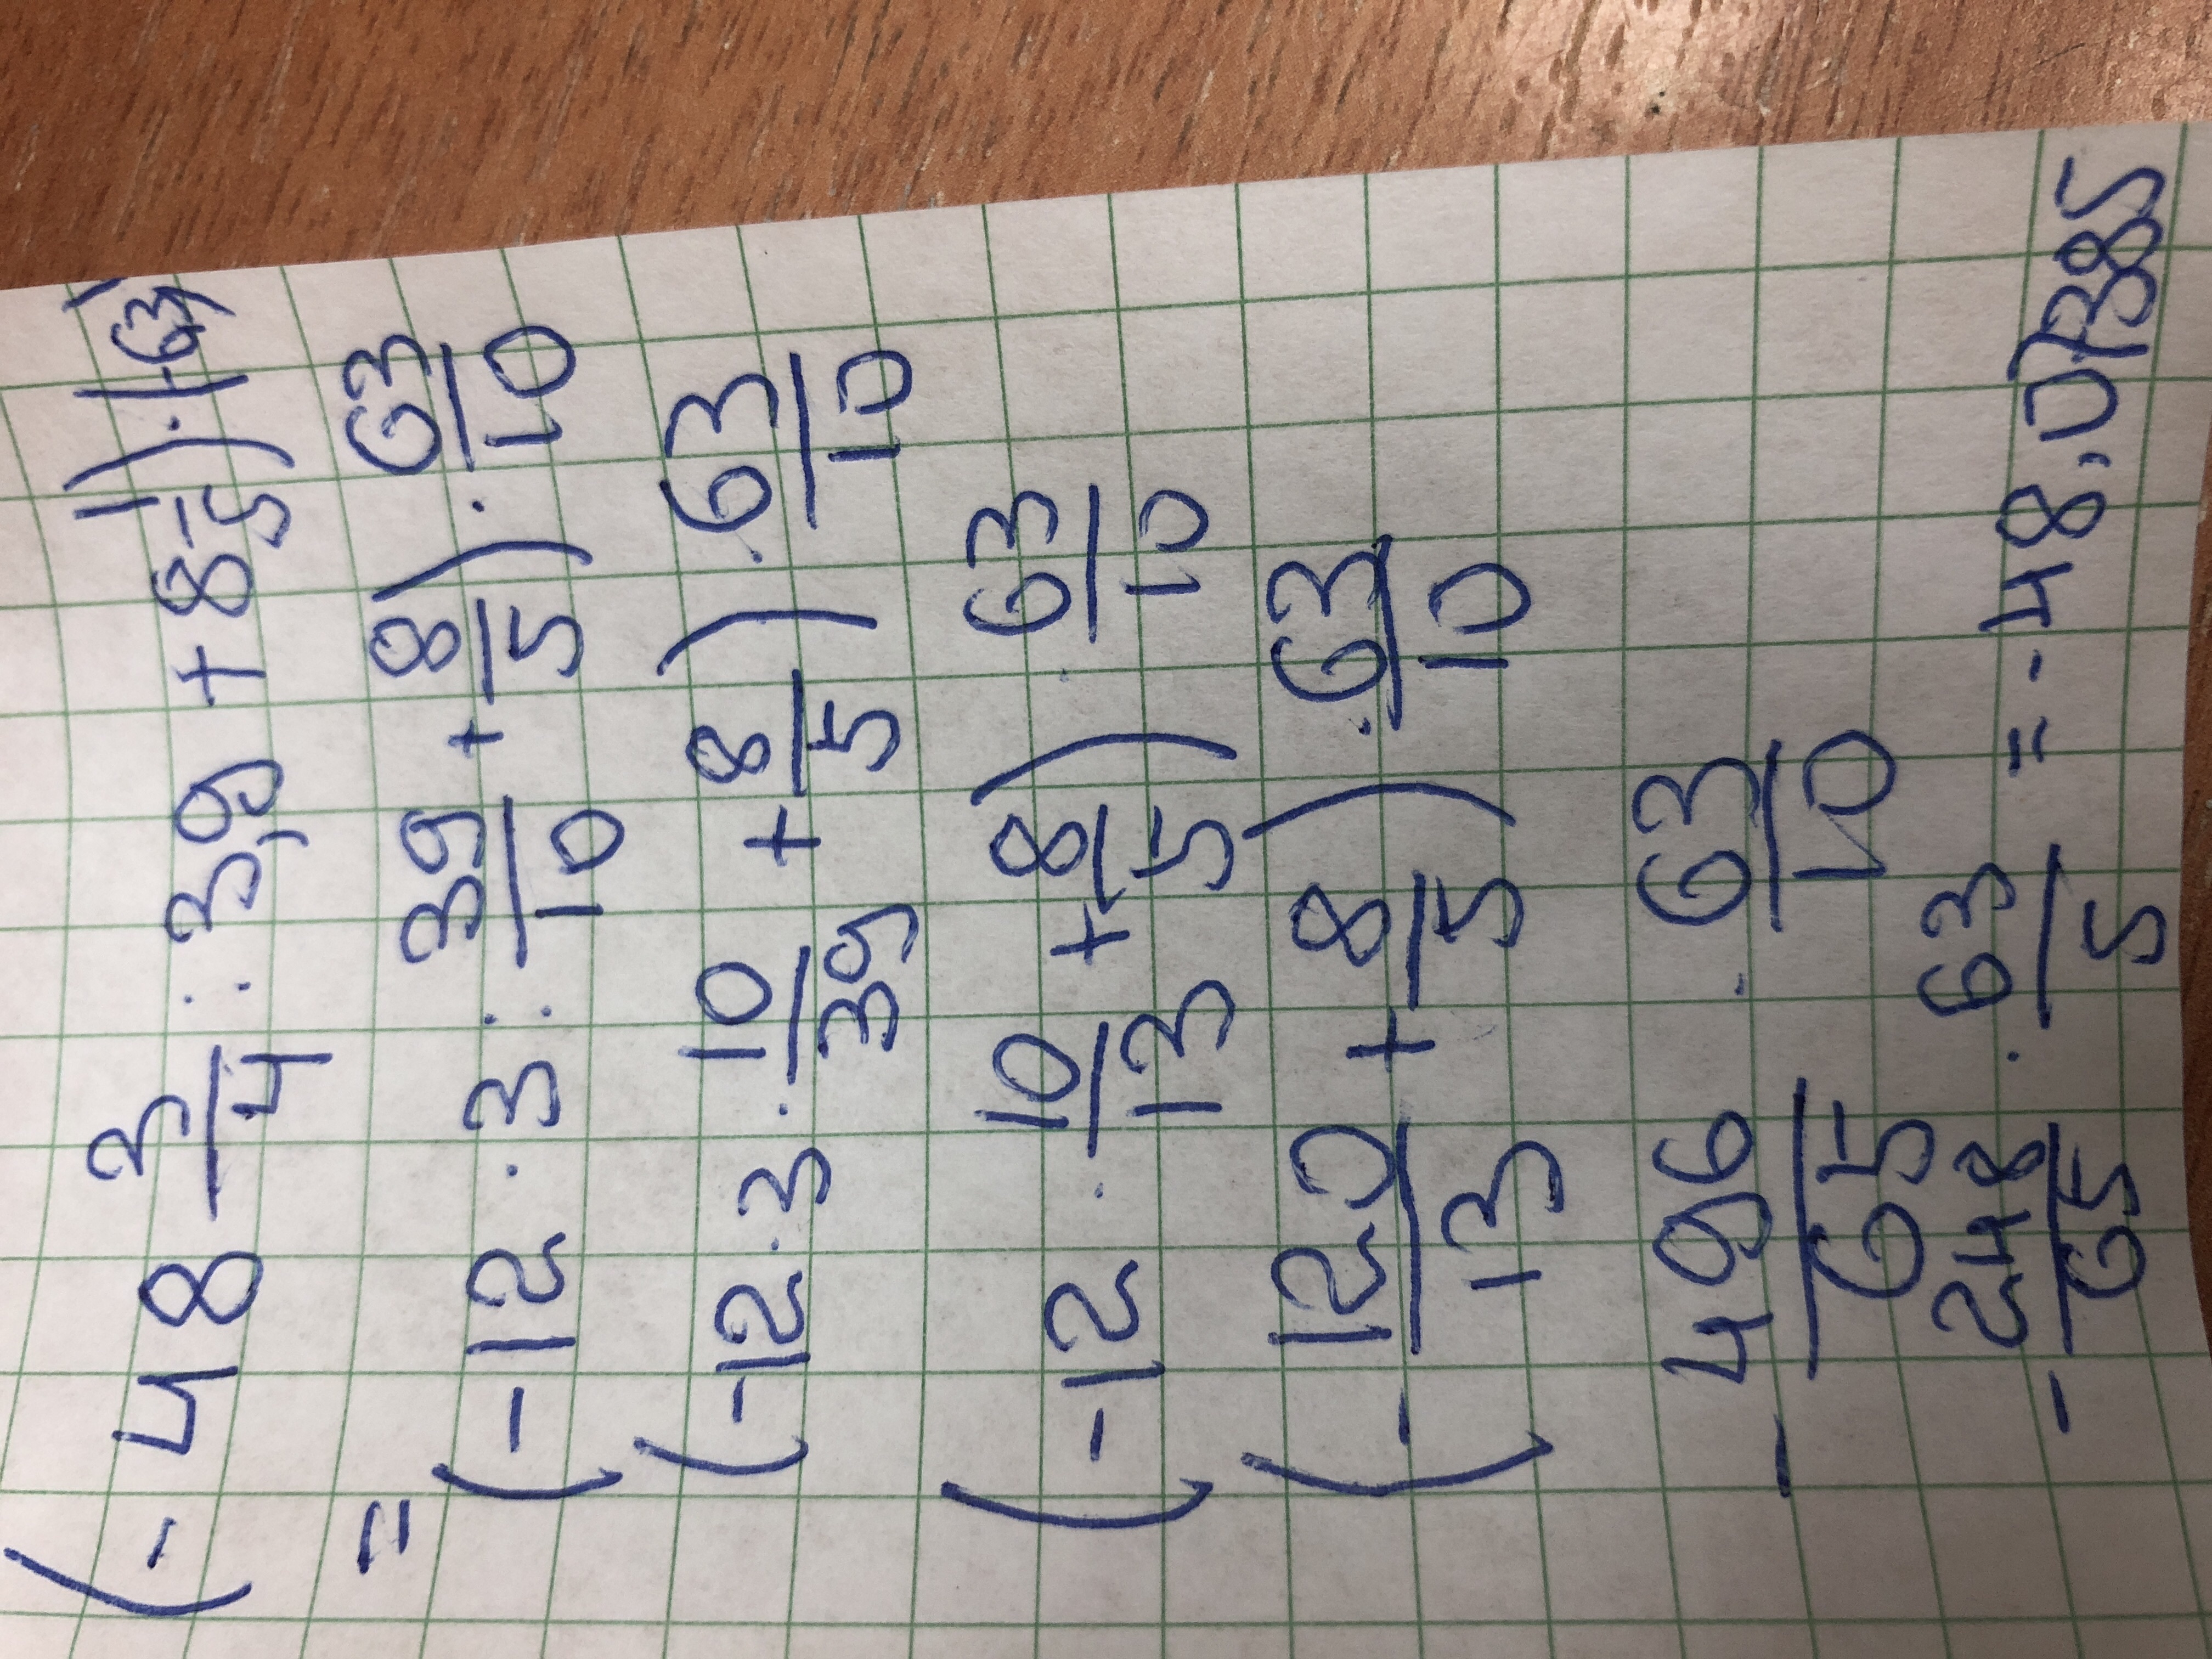 (- 48 3/4 : 3,9 + 8 1/5) · (-63)
= (-12 · 3 : 39/10 + 8/5) · 63/10
(-12 · 3 · 10/39 + 8/5) · 63/10
(-12 · 10/13 + 8/5) · 63/10
(- 120/13 + 8/5) · 63/10
- 496/65 · 63/10
- 248/65 · 63/5 = -48,07385